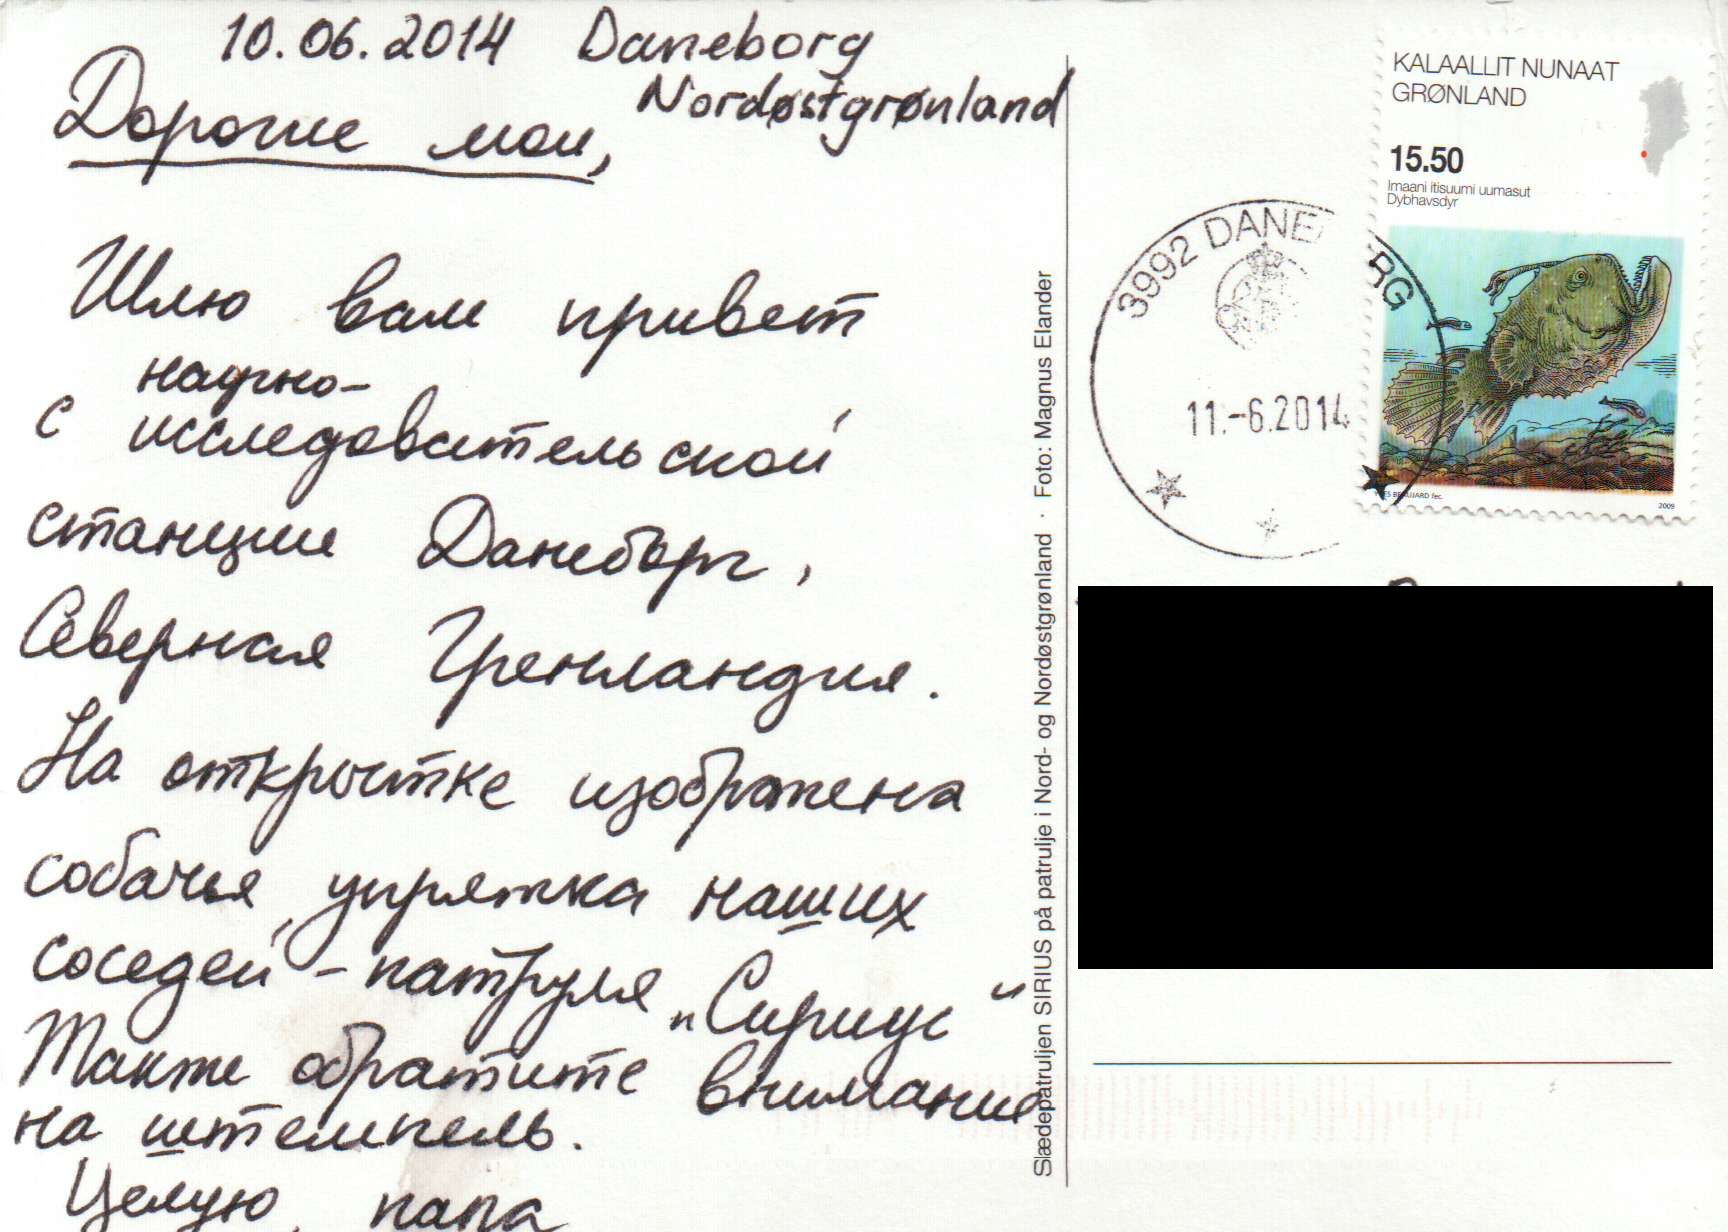 10.06.2014 Daneborg
Nordøstgrønland
Дорогие мои,
Шлю вам привет
с научно-
исследовательской
станции Данеборг,
Северная Гренландия.
На открытке изображена
собачья упряжка наших
соседей – патруля „Сириус“
Также обратите внимание
на штемпель.
Целую, папа
Slædepatruljen SIRIUS på patrulje i Nord- og Nordøstgrønland · Foto: Magnus Elander
KALAALLIT NUNAAT
GRØNLAND
15.50
Imaani itisuumi uumasut
Dybhavsdyr
3992 DANE RG
11.-6.2014
YVES BEAUJARD fec.
2009